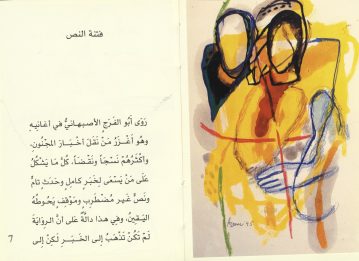 فتنة النص
رَوَى أَبُو الفَرَجِ الأَصبهانيُّ في أغانِيهِ
وهو أَغْزَرُ مَنْ نَقَلَ أَخْبَارَ المَجْنُونِ،
وأكثرُهُم نَسْخاً ونَقْضاً، كُلَّ ما يَشْكُلُ
عَلَى مَنْ يَسْعَى لِخَبَرٍ كامِلٍ وحَدَثٍ تامٍّ
ونَصٍّ غَيرِ مُضْطَرِبٍ ومَوْقِفٍ يَحُوطُهُ
اليَقِينُ، وفي هذا دالَّةٌ على أنَّ الروايَةَ
لَمْ تَكُنْ تَذْهَبُ إلى الخَبَرِ لكنْ إلى
7